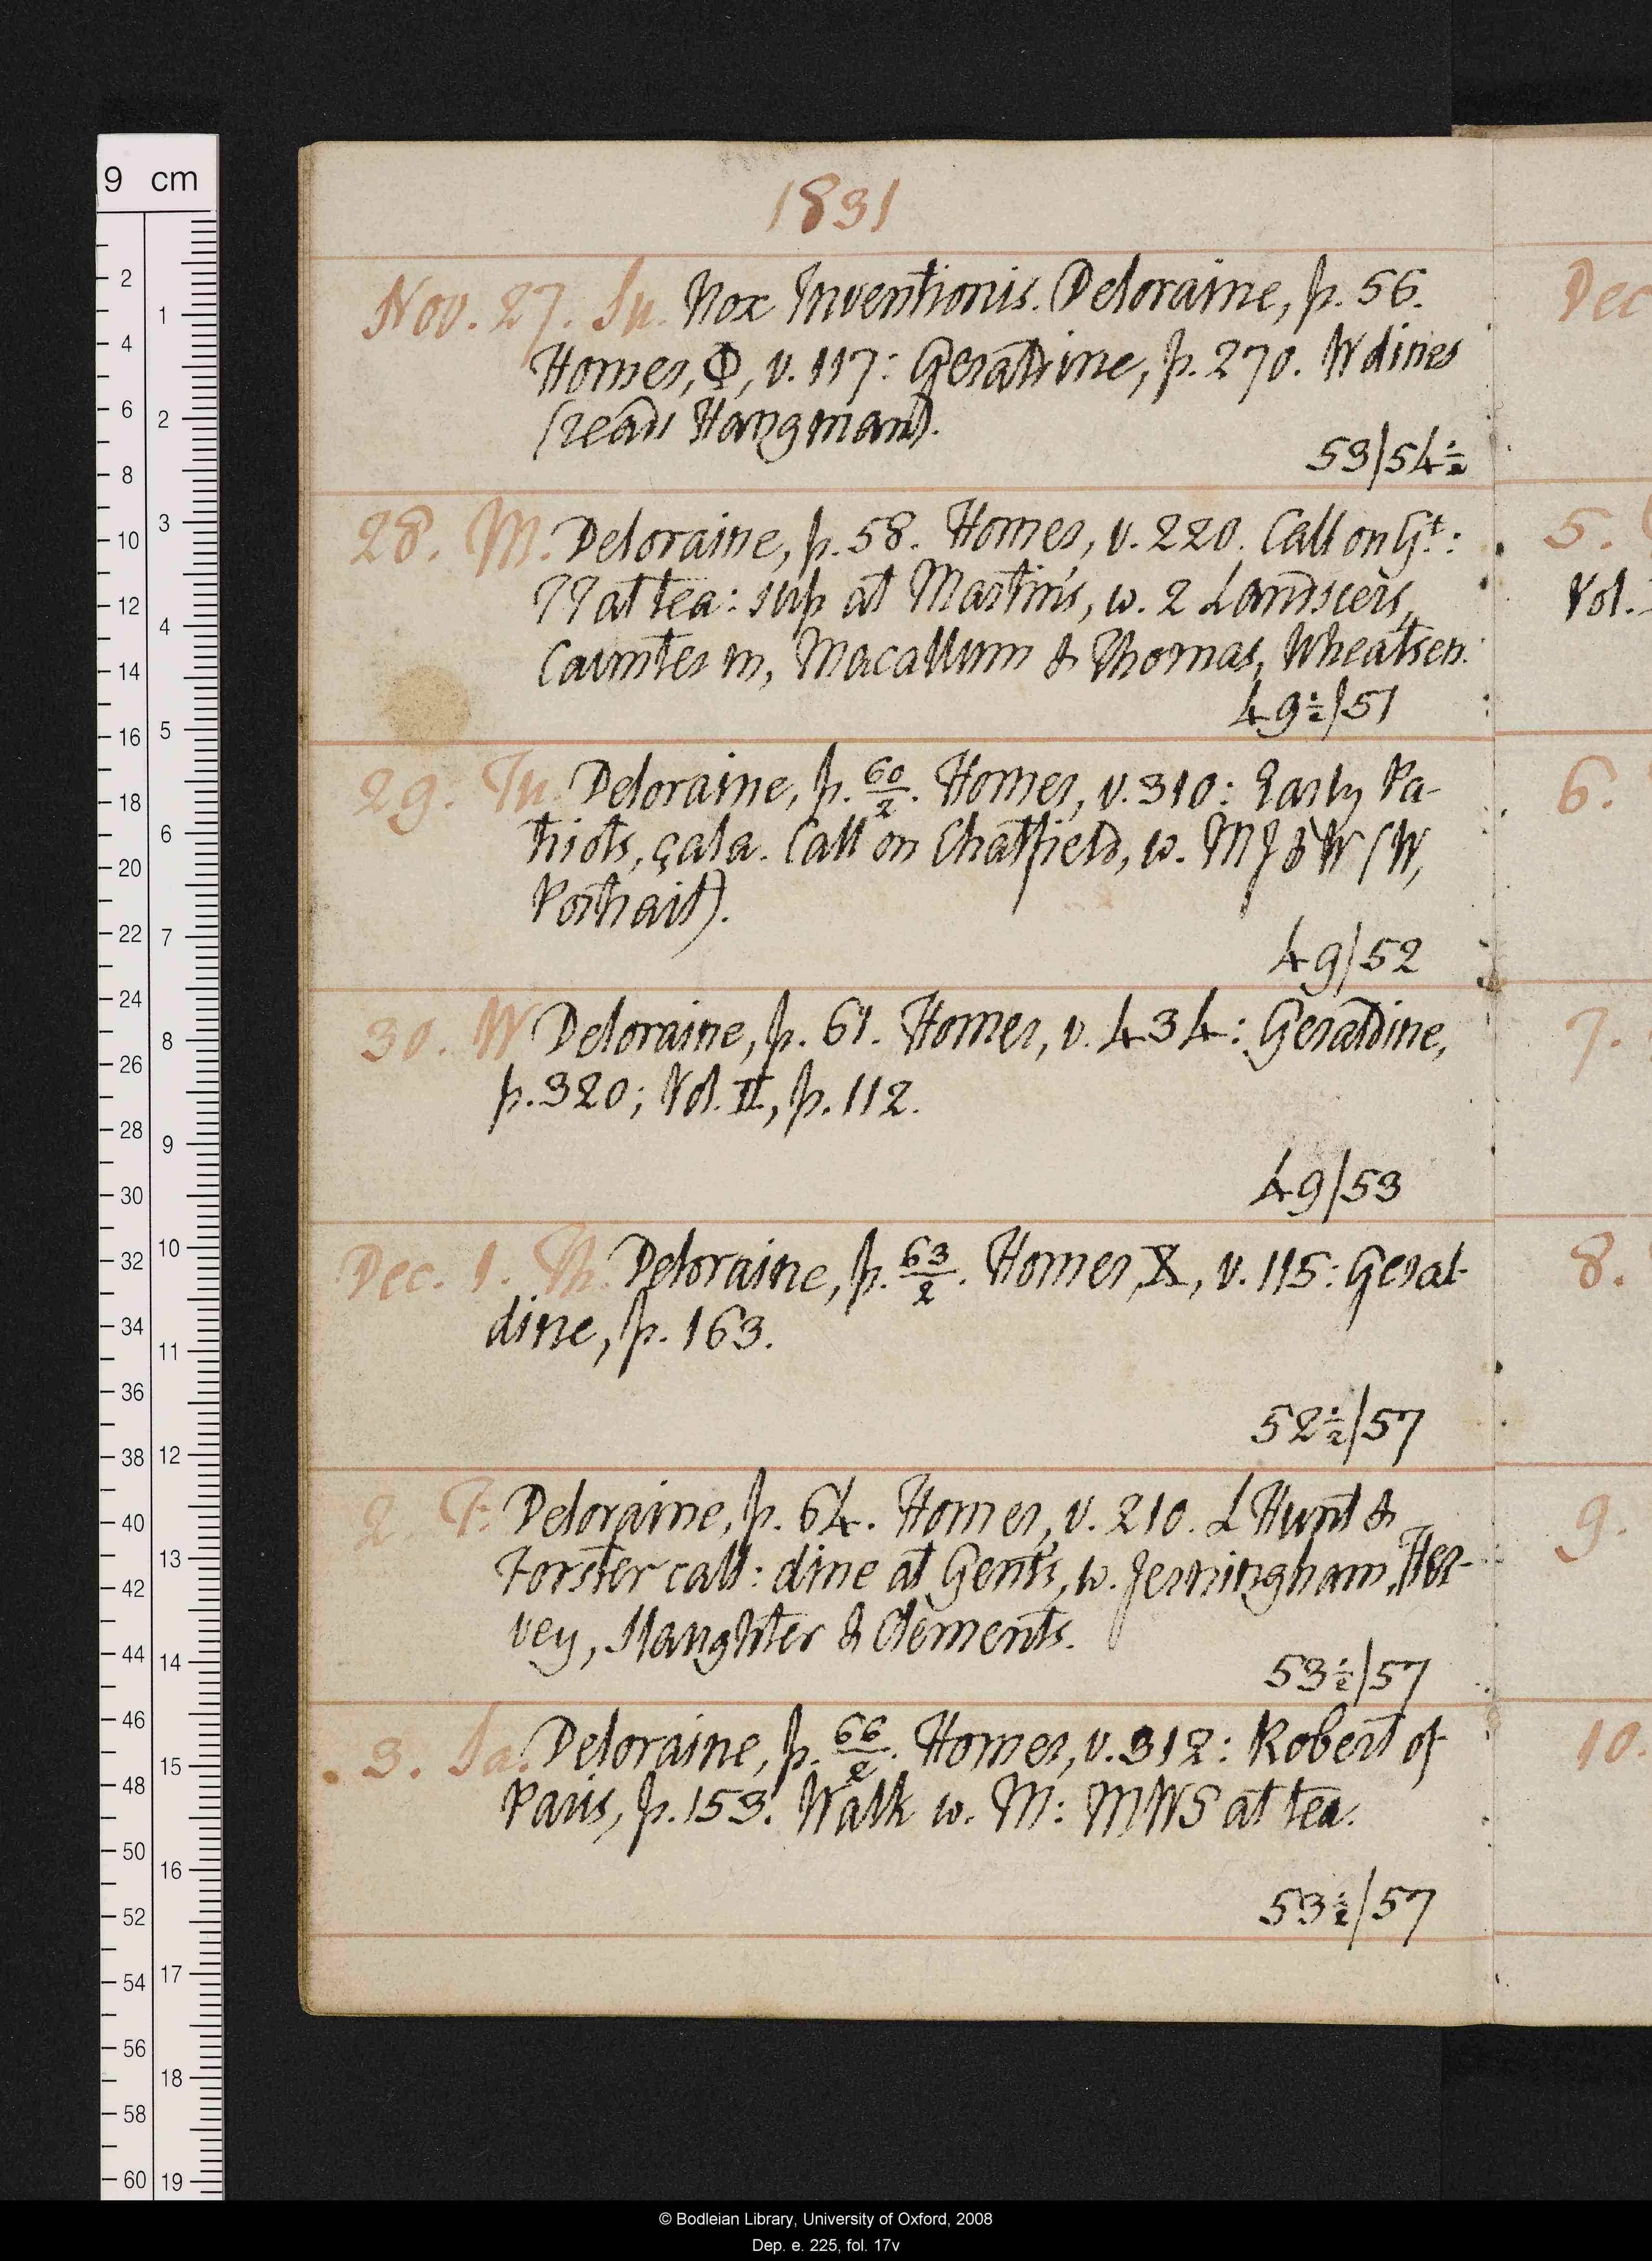 1831
Nov. 27. Su. Nox Inventionis. Deloraine, p. 56.
Homer, Φ, v. 117: Geraldine, p. 270. W dines
(read Hangman).
53/54½
28. M. Deloraine, p. 58. Homer, v. 220. Call on Gt:
PP at tea: sup at Martin's, w. 2 Landseers,
Caunter m, Macallum & Thomas, Wheatsn.
49½/51
29. Tu. Deloraine, p. 60/2. Homer, v. 310: Early Pa-
triots, çala. Call on Chatfield, w. MJ & W (W,
Portrait).
49/52
30. W Deloraine, p. 61. Homer, v. 434: Geraldine,
p. 320; Vol. II, p. 112.
49/53
Dec. 1. Th. Deloraine, p. 63/2. Homer, X, v. 115: Geral-
dine, p. 163.
52½/57
2. F. Deloraine, p. 64. Homer, v. 210. L Hunt &
Forster call: dine at Gent's, w. Jerningham, Her-
vey, Slaughter & Clements.
53½/57
3. Sa. Deloraine, p. 66/2. Homer, v. 312: Robert of
Paris, p. 153. Walk w. M: MWS at tea.
53½/57
Dec
5.
Vol.
6.
7.
8.
9.
10.
9 cm
2 4 6 8 10 12 14 16 18 20 22 24 26 28 30 32 34 36 38 40 42 44 46 48 50 52 54 56 58 60
1 2 3 4 5 6 7 8 9 10 11 12 13 14 15 16 17 18 19
© Bodleian Library, University of Oxford, 2008
Dep. e. 225, fol. 17v